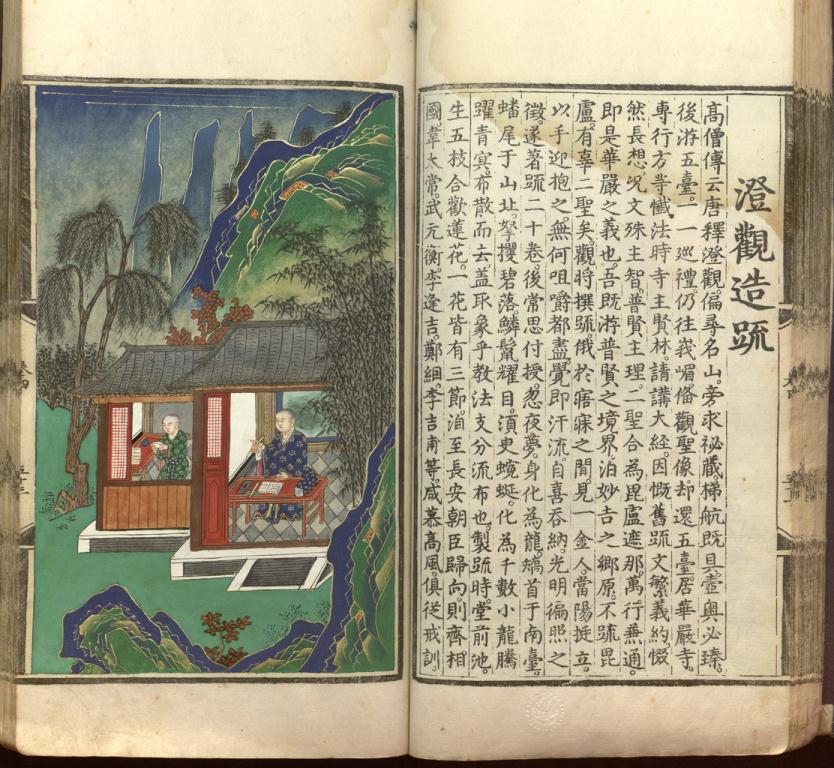 澄觀造䟽
高僧傳云。唐釋澄觀。徧尋名山。旁求祕藏。梯航既具。壼奥必臻。
後游五臺。一一巡禮。仍往峩嵋。偹觀聖像。却還五臺。居華嚴寺。
專行方䓁懺法。時寺主賢林。請講大經。因慨舊䟽。文繁義約。惙
然長想。况文殊主智。普賢主理。二聖合為毘盧遮那。萬行兼通。
即是華嚴之義也。吾既游普賢之境界。洎妙吉之鄉原。不䟽毘
盧。有辜二聖矣。觀將撰䟽。俄於寤寐之間。見一金人。當陽挺立。
以手迎抱之。無何咀嚼都盡。覺即汗流。自喜吞納。光明徧照之
徵。遂著䟽二十卷。後常思付授。忽夜夢。身化為龍。矯首于南臺。
蟠尾于山北。拏攫碧落。鱗鬣耀日。湏臾蜿蜒。化為千數小龍。騰
躍青冥。布散而去。盖取象乎教法支分流布也。製䟽時。堂前池。
生五枝合歡蓮花。一花皆有三節。洎至長安。朝臣歸向。則齊相
國。韋太常。武元衡。李逢吉。鄭絪。李吉甫等。咸慕高風。俱從戒訓。